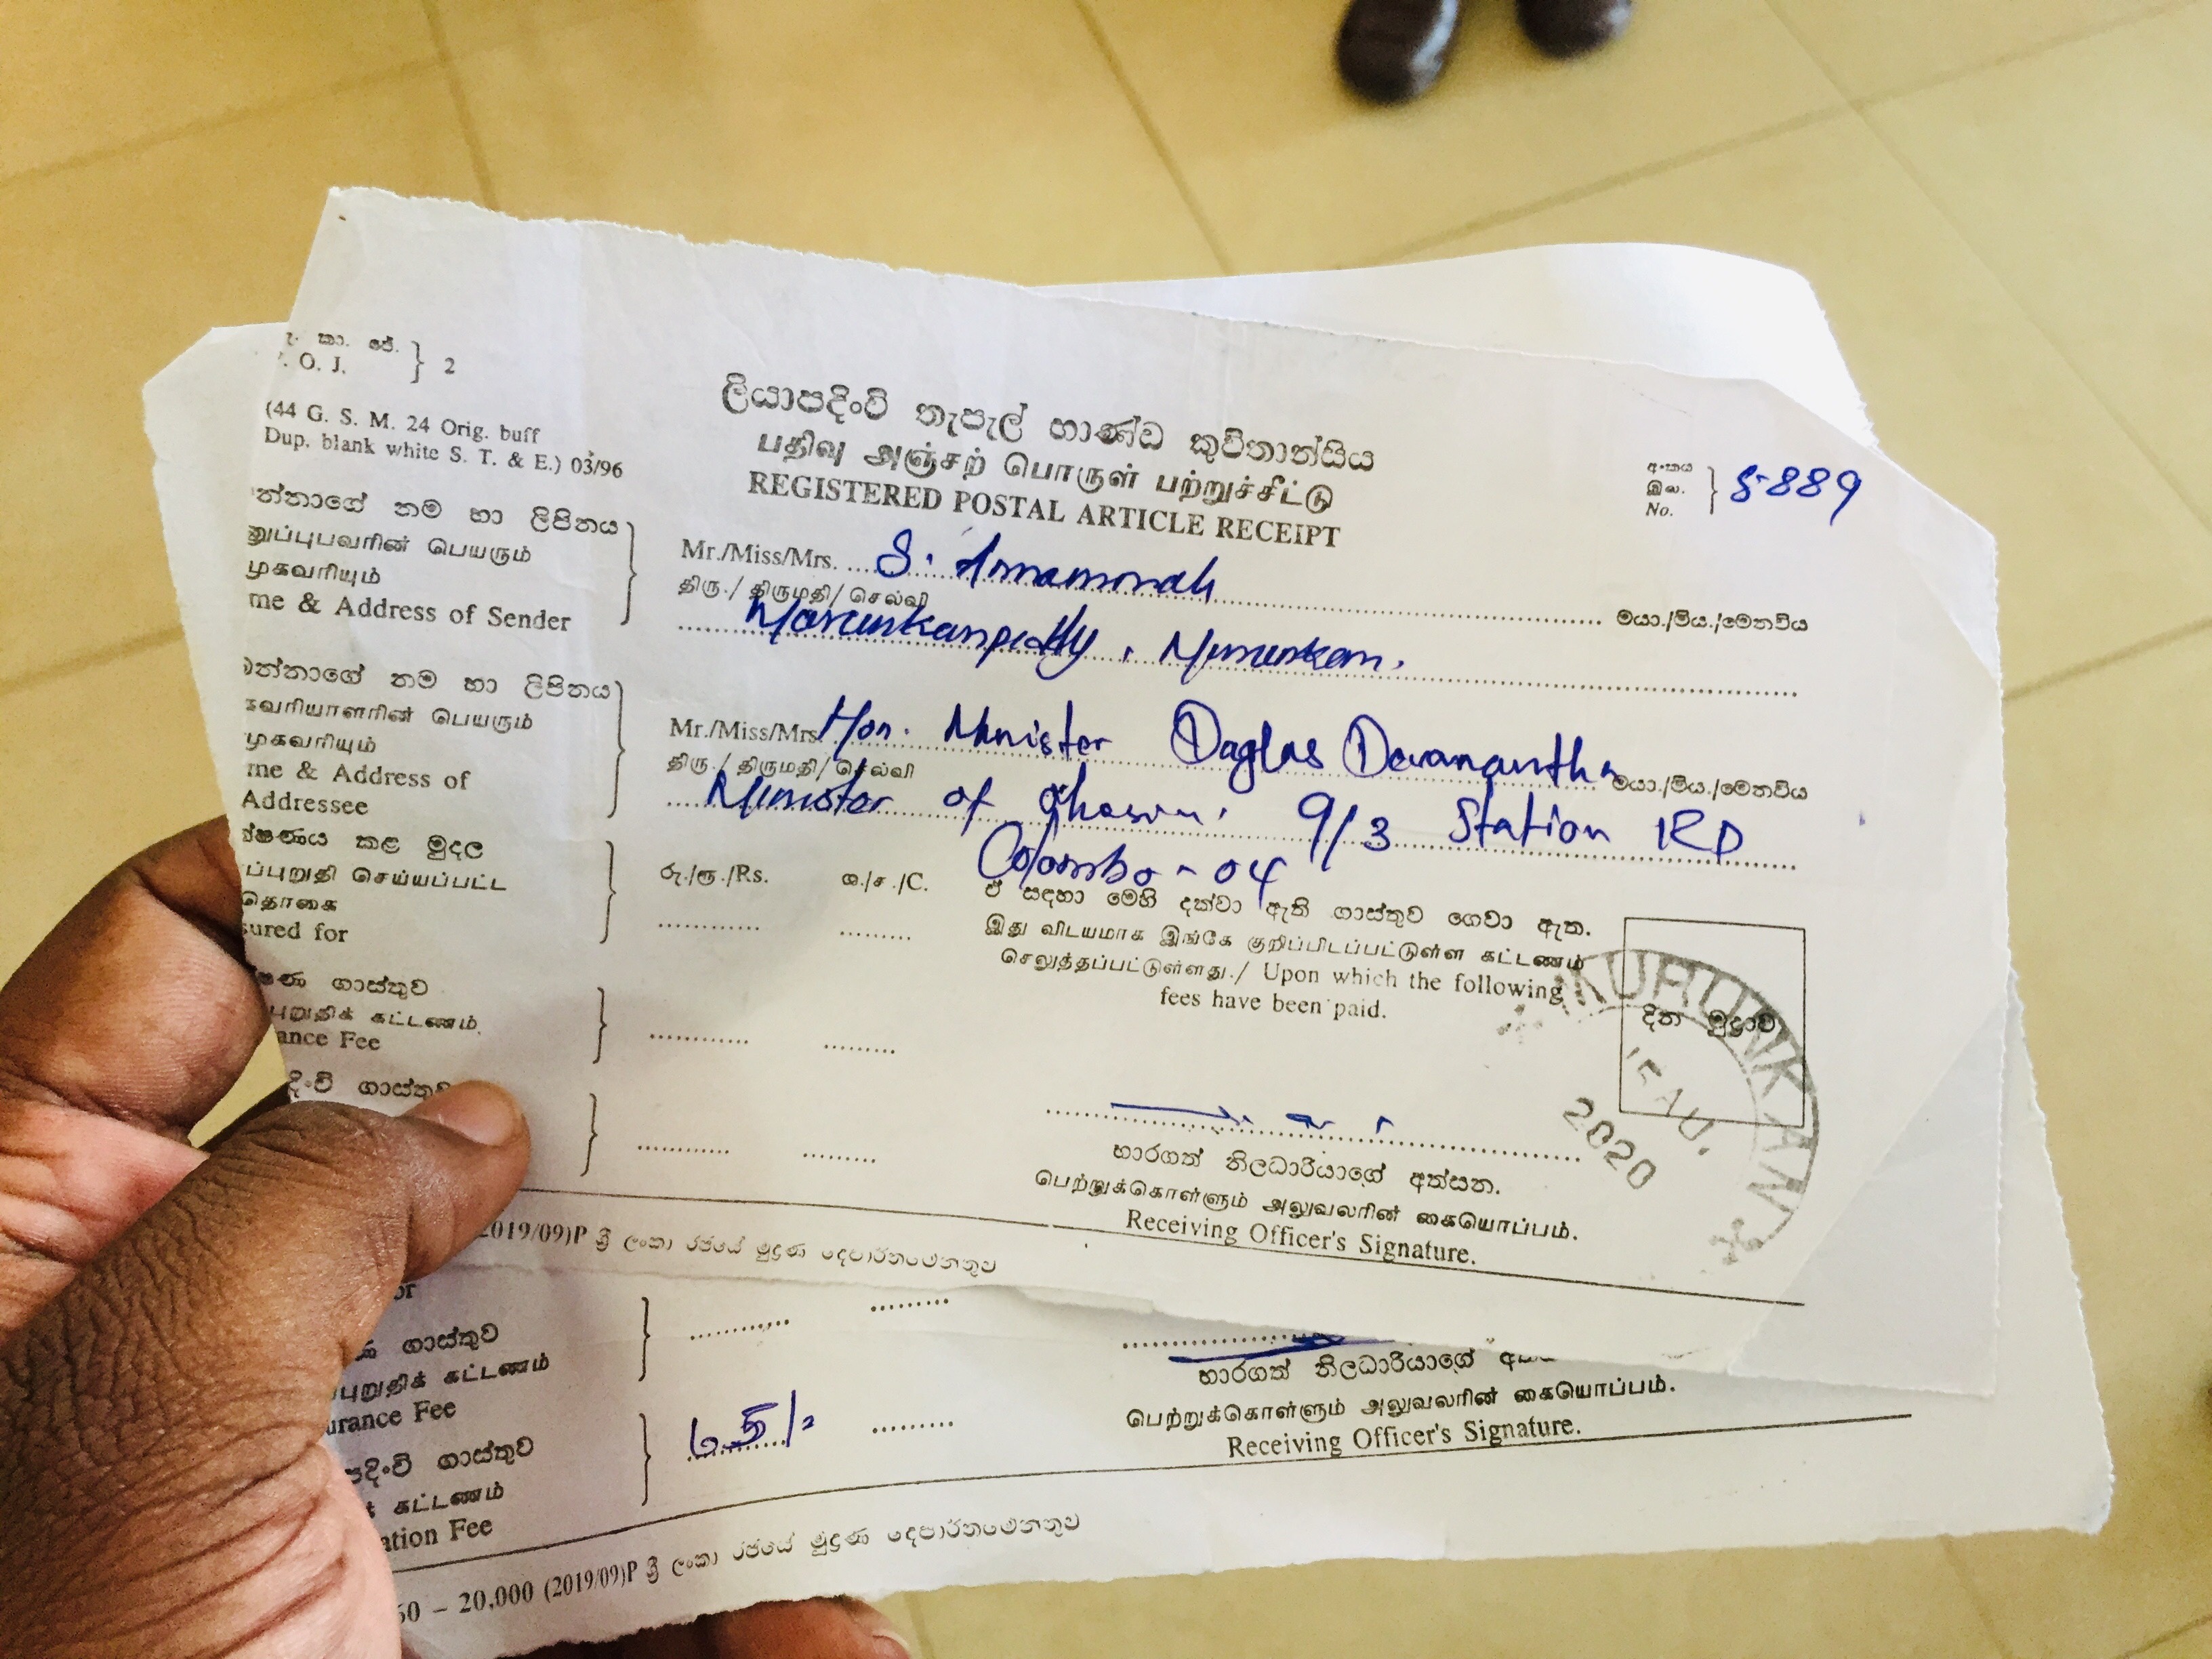 කා. පේ.
. O. J. } 2
(44 G. S. M. 24 Orig. buff
Dup. blank white S. T. & E.) 03/96
ලියාපදිංචි තැපැල් භාණ්ඩ කුවිතාන්සිය
பதிவு அஞ்சற் பொருள் பற்றுச்சீட்டு
REGISTERED POSTAL ARTICLE RECEIPT
අංකය
இல.
No. } 5889
න්නාගේ නම හා ලිපිනය
னுப்புபவரின் பெயரும்
முகவரியும்
me & Address of Sender
Mr./Miss/Mrs. S.
திரு./ திருமதி/ செல்வி
මයා./මිය./මෙනවිය
Murunkan.
න්නාගේ නම හා ලිපිනය
கவரியாளரின் பெயரும்
முகவரியும்
me & Address of
Addressee
Mr./Miss/Mrs Hon. Minister Daglas Devanantha
திரு./ திருமதி/ செல்வி
මයා./මිය./මෙනවිය
Minister of 9/3 Station RD
Colombo - 04
ක්ෂණය කළ මුදල
ப்புறுதி செய்யப்பட்ட
தொகை
sured for
රු./ரூ./Rs. ශ./ச./C.
ඒ සඳහා මෙහි දක්වා ඇති ගාස්තුව ගෙවා ඇත.
இது விடயமாக இங்கே குறிப்பிடப்பட்டுள்ள கட்டணம்
செலுத்தப்பட்டுள்ளது./ Upon which the following
fees have been paid.
ෂණ ගාස්තුව
புறுதிக் கட்டணம்
ance Fee
දිංචි ගාස්තුව
දින මුද්‍රාව
MURUNKAN
AU.
2020
භාරගත් නිලධාරියාගේ අත්සන.
பெற்றுக்கொள்ளும் அலுவலரின் கையொப்பம்.
Receiving Officer's Signature.
2019/09)P ශ්‍රී ලංකා රජයේ මුද්‍රණ දෙපාර්තමේන්තුව
or
ණ ගාස්තුව
புறுதிக் கட்டணம்
urance Fee
පදිංචි ගාස්තුව
கட்டணம்
ation Fee
භාරගත් නිලධාරියාගේ
பெற்றுக்கொள்ளும் அலுவலரின் கையொப்பம்.
Receiving Officer's Signature.
60 – 20,000 (2019/09)P ශ්‍රී ලංකා රජයේ මුද්‍රණ දෙපාර්තමේන්තුව